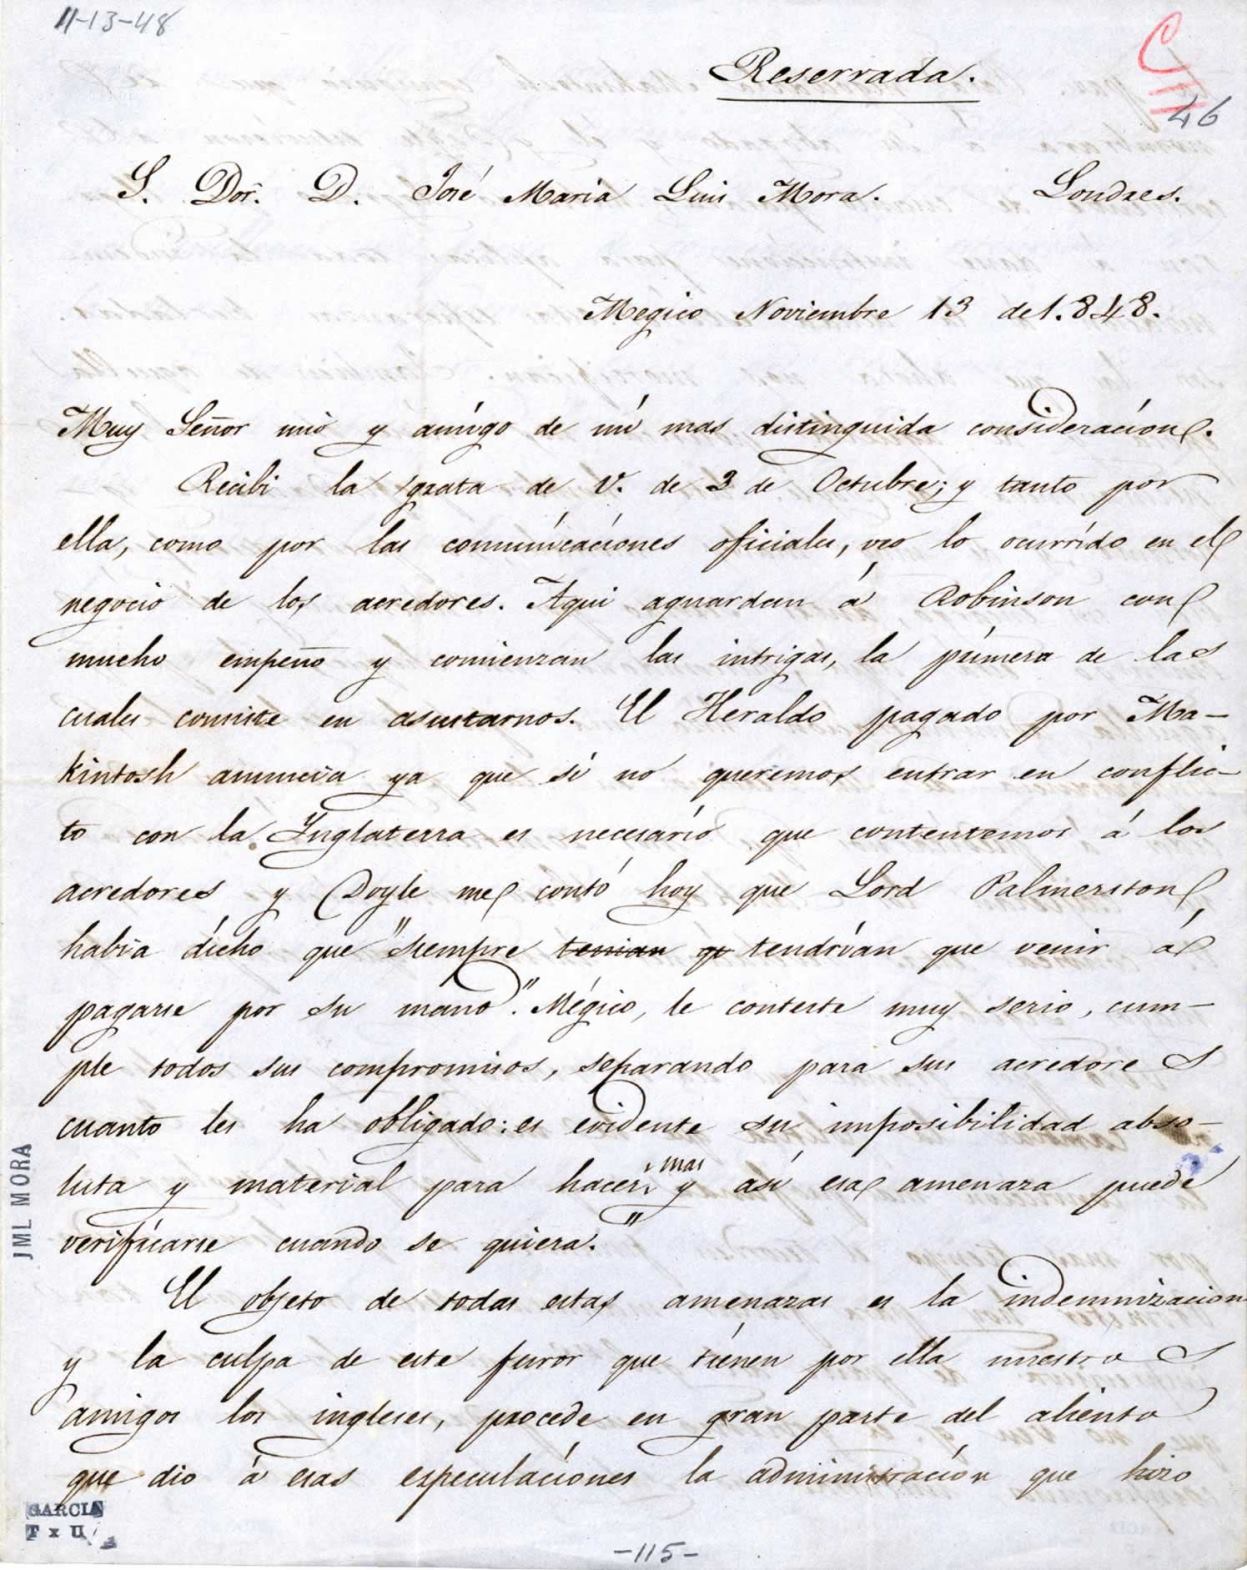 11-13-48
Reservada.
C
46
S. Dor. D. José María Luis Mora. Londres.
Megico Noviembre 13 de 1.848.
Muy Señor mió y amígo de mí mas distinguida consideracíon.
Recibi la grata de V. de 3 de Octubre; y tanto por
ella, como por las comunícacíones oficiales, veo lo ocurrído en el
negocio de los acredores. Aqui aguardan á Robinson con
mucho empeño y comienzan las intrigas, la prímera de las
cuales consiste en asustarnos. El Heraldo pagado por Ma-
kintosh anuncia ya que sí no queremos entrar en conflic-
to con la Ynglaterra es necesarió que contentemos á los
acredores y Doyle me contó hoy que Lord Palmerston
habia dícho que "siempre tenian qe tendrían que venir á
pagarse por su mano". Mégico, le conteste muy serio, cum-
ple todos sus compromisos, separando para sus acredores
cuanto les ha obligado: es evidente su imposibilidad abso-
luta y material para hacer mas y así esa amenaza puede
verifícarse cuando se quiera."
El objeto de todas estas amenazas es la indemnizacion
y la culpa de este furor que tíenen por ella nuestros
amigos los ingleses, procede en gran parte del aliento
que dio á esas especulacíones la administracíon que hizo
JML MORA
GARCIA
T x U
-115-